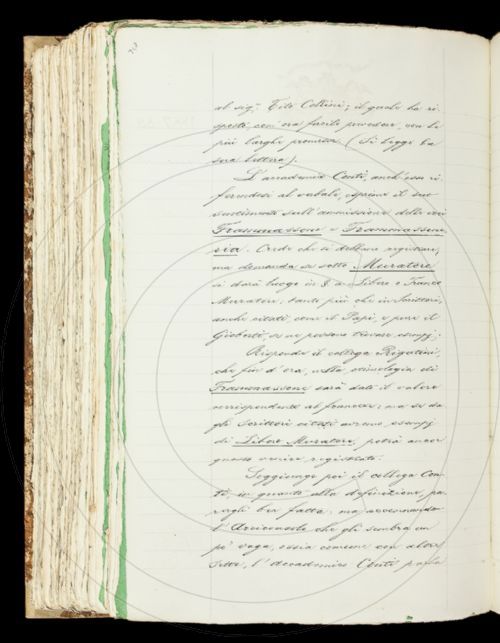 al sig.r Tito Cellini; il quale ha ri-
sposto, com' era facile prevedere, con le
più larghe promesse (Si legge la
sua lettera).
L'accademico Conti, anch'esso ri-
ferendosi al verbale, esprime il suo
sentimento sull'ammissione delle voci
Frammassone e Frammassone
ria. Crede che si debbano registrare;
ma domanda se sotto Muratore
si darà luogo in § a Libero e Franco
Muratore; tanto più che in Scrittori,
anche citati, come il Papi, e pure il
Gioberti, se ne possono trovare esempj.
Risponde il collega Rigutini,
che fin d'ora, nella etimologia di
Frammassone sarà dato il valore
corrispondente al francese; ma se da
gli Scrittori citati avremo esempj
di Libero Muratore, potrà ancor
questo venire registrato.
Soggiunge poi il collega Con-
ti, in quanto alla definizione, pa
rergli ben fatta; ma accennando
l'Arciconsolo che gli sembra un
pò vaga, ossia comune con altre
Sette, l'Accademico Conti